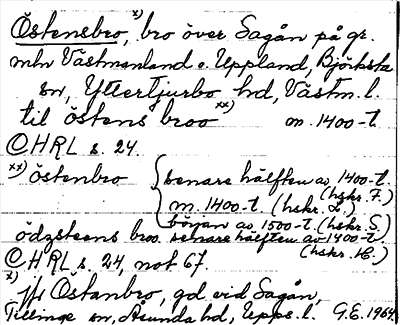 Östensbro, x) bro över Sagån på gr.
mln Västmanland o. Uppland, Björksta
sn, Yttertjurbo hd, Västm. l.
til östens broo xx) m. 1400-t.
CHRL s. 24.
xx) östenbro senare hälften av 1400-t. (hskr. F.)
m. 1400-t. (hskr. L.)
början av 1500-t. (hskr. S.)
ödzsteens broo senare hälften av 1400-t. (hskr. H.)
CHRL s. 24, not 67.
x) jfr Östanbro, gd vid Sagån,
Tillinge sn, Åsunda hd, Upps. l. G.E. 1964